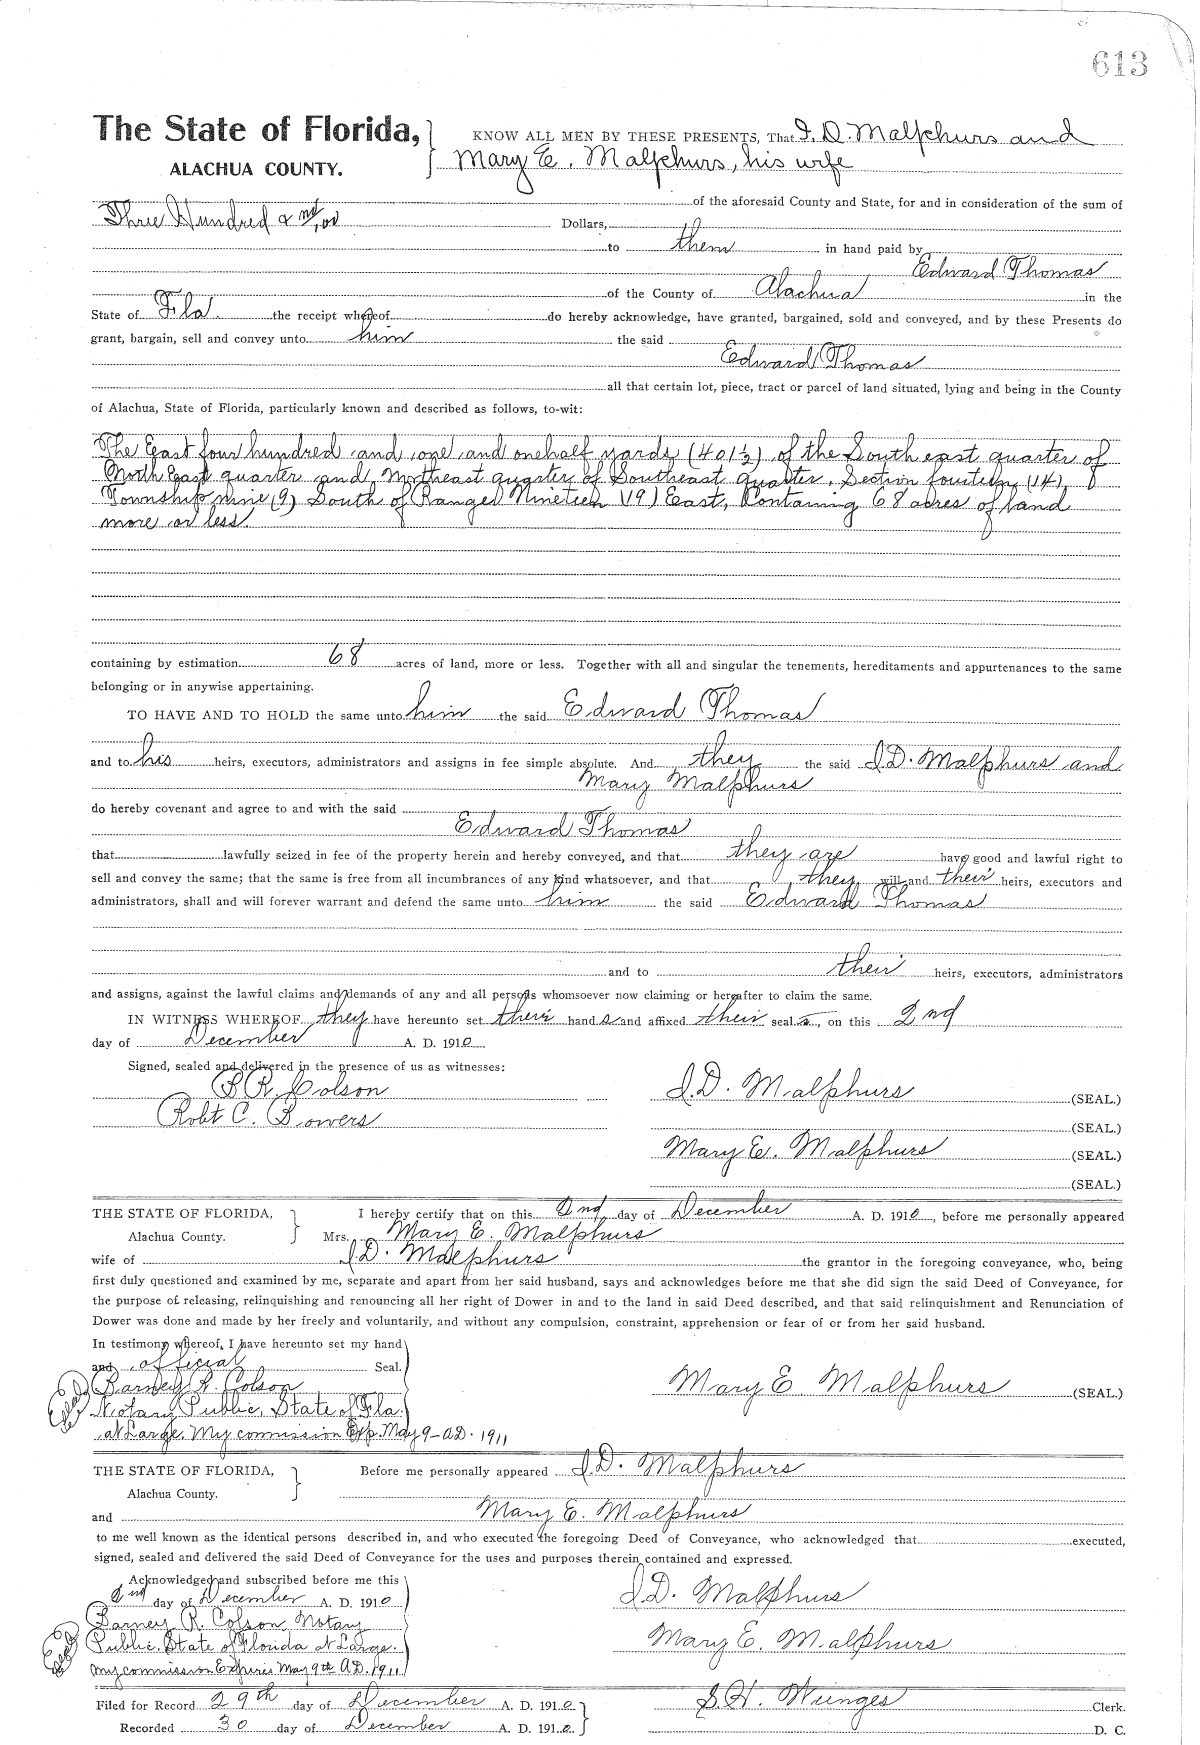 613
The State of Florida, KNOW ALL MEN BY THESE PRESENTS, That I. D. Malphurs and
ALACHUA COUNTY. Mary E. Malphurs, his wife
of the aforesaid County and State, for and in consideration of the sum of
Three Hundred & no/00 Dollars,
to them in hand paid by
Edward Thomas
of the County of Alachua in the
State of Fla. the receipt whereof do hereby acknowledge, have granted, bargained, sold and conveyed, and by these Presents do
grant, bargain, sell and convey unto him the said
Edward Thomas
all that certain lot, piece, tract or parcel of land situated, lying and being in the County
of Alachua, State of Florida, particularly known and described as follows, to-wit:
The East four hundred and one and onehalf yards (401½) of the South east quarter of
North East quarter and Northeast quarter of Southeast quarter, Section fourteen (14),
Township nine (9) South of Range Nineteen (19) East, Containing 68 acres of land
more or less
containing by estimation 68 acres of land, more or less. Together with all and singular the tenements, hereditaments and appurtenances to the same
belonging or in anywise appertaining.
TO HAVE AND TO HOLD the same unto him the said Edward Thomas
and to his heirs, executors, administrators and assigns in fee simple absolute. And they the said I.D. Malphurs and
Mary Malphurs
do hereby covenant and agree to and with the said
Edward Thomas
that lawfully seized in fee of the property herein and hereby conveyed, and that they are have good and lawful right to
sell and convey the same; that the same is free from all incumbrances of any kind whatsoever, and that they will and their heirs, executors and
administrators, shall and will forever warrant and defend the same unto him the said Edward Thomas
and to their heirs, executors, administrators
and assigns, against the lawful claims and demands of any and all persons whomsoever now claiming or hereafter to claim the same.
IN WITNESS WHEREOF they have hereunto set their hand s and affixed their seal s, on this 2nd
day of December A. D. 1910
Signed, sealed and delivered in the presence of us as witnesses:
B R. Colson I.D. Malphurs (SEAL.)
Robt C. Bowers (SEAL.)
Mary E. Malphurs (SEAL.)
(SEAL.)
THE STATE OF FLORIDA, I hereby certify that on this 2nd day of December A. D. 1910, before me personally appeared
Alachua County. Mrs. Mary E. Malphurs
wife of I.D. Malphurs the grantor in the foregoing conveyance, who, being
first duly questioned and examined by me, separate and apart from her said husband, says and acknowledges before me that she did sign the said Deed of Conveyance, for
the purpose of releasing, relinquishing and renouncing all her right of Dower in and to the land in said Deed described, and that said relinquishment and Renunciation of
Dower was done and made by her freely and voluntarily, and without any compulsion, constraint, apprehension or fear of or from her said husband.
In testimony whereof, I have hereunto set my hand
and official Seal.
Barney R. Colson Mary E. Malphurs (SEAL.)
Seal Notary Public, State of Fla.
at Large. My commission Exp. May 9- A.D. 1911
THE STATE OF FLORIDA, Before me personally appeared I.D. Malphurs
Alachua County.
and Mary E. Malphurs
to me well known as the identical persons described in, and who executed the foregoing Deed of Conveyance, who acknowledged that executed,
signed, sealed and delivered the said Deed of Conveyance for the uses and purposes therein contained and expressed.
Acknowledged and subscribed before me this
2nd day of December A. D. 1910 I.D. Malphurs
Barney R. Colson Notary
Seal Public, State of Florida at Large. Mary E. Malphurs
My commission Expires May 9th A.D. 1911
Filed for Record 29th day of December A. D. 1910 S.H. Wienges Clerk.
Recorded 30 day of December A. D. 1910. D. C.